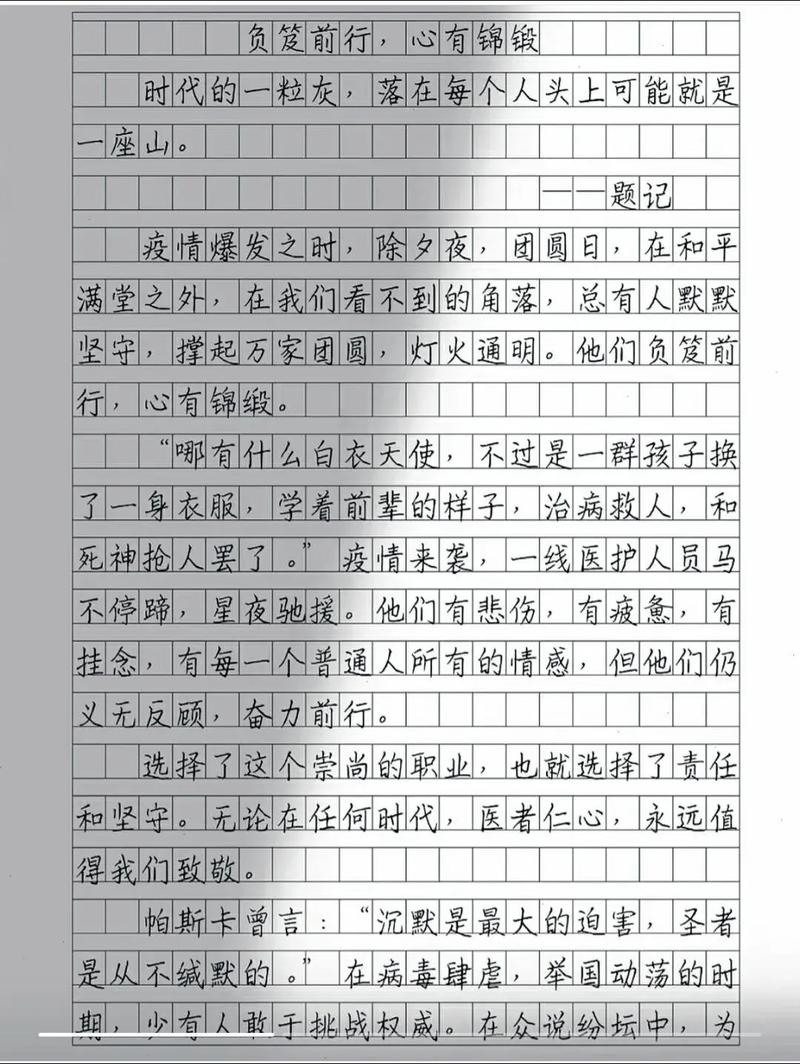 负笈前行，心有锦锻
时代的一粒灰，落在每个人头上可能就是
一座山。
——题记
疫情爆发之时，除夕夜，团圆日，在和平
满堂之外，在我们看不到的角落，总有人默默
坚守，撑起万家团圆，灯火通明。他们负笈前
行，心有锦缎。
“哪有什么白衣天使，不过是一群孩子换
了一身衣服，学着前辈的样子，治病救人，和
死神抢人罢了。”疫情来袭，一线医护人员马
不停蹄，星夜驰援。他们有悲伤，有疲惫，有
挂念，有每一个普通人所有的情感，但他们仍
义无反顾，奋力前行。
选择了这个崇尚的职业，也就选择了责任
和坚守。无论在任何时代，医者仁心，永远值
得我们致敬。
帕斯卡曾言：“沉默是最大的迫害，圣者
是从不缄默的。”在病毒肆虐，举国动荡的时
期，少有人敢于挑战权威。在众说纷坛中，为